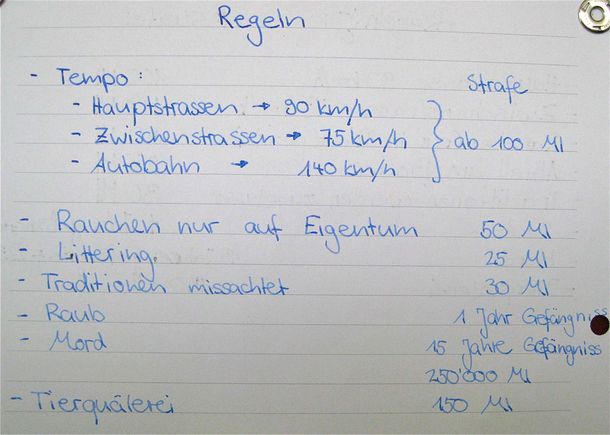 Regeln
- Tempo : Strafe
- Hauptstrassen → 90 km/h
- Zwischenstrassen → 75 km/h } ab 100 Ml
- Autobahn → 140 km/h
- Rauchen nur auf Eigentum 50 Ml
- Littering 25 Ml
- Traditionen missachtet 30 Ml
- Raub 1 Jahr Gefängniss
- Mord 15 Jahre Gefängniss
250'000 Ml
- Tierquälerei 150 Ml